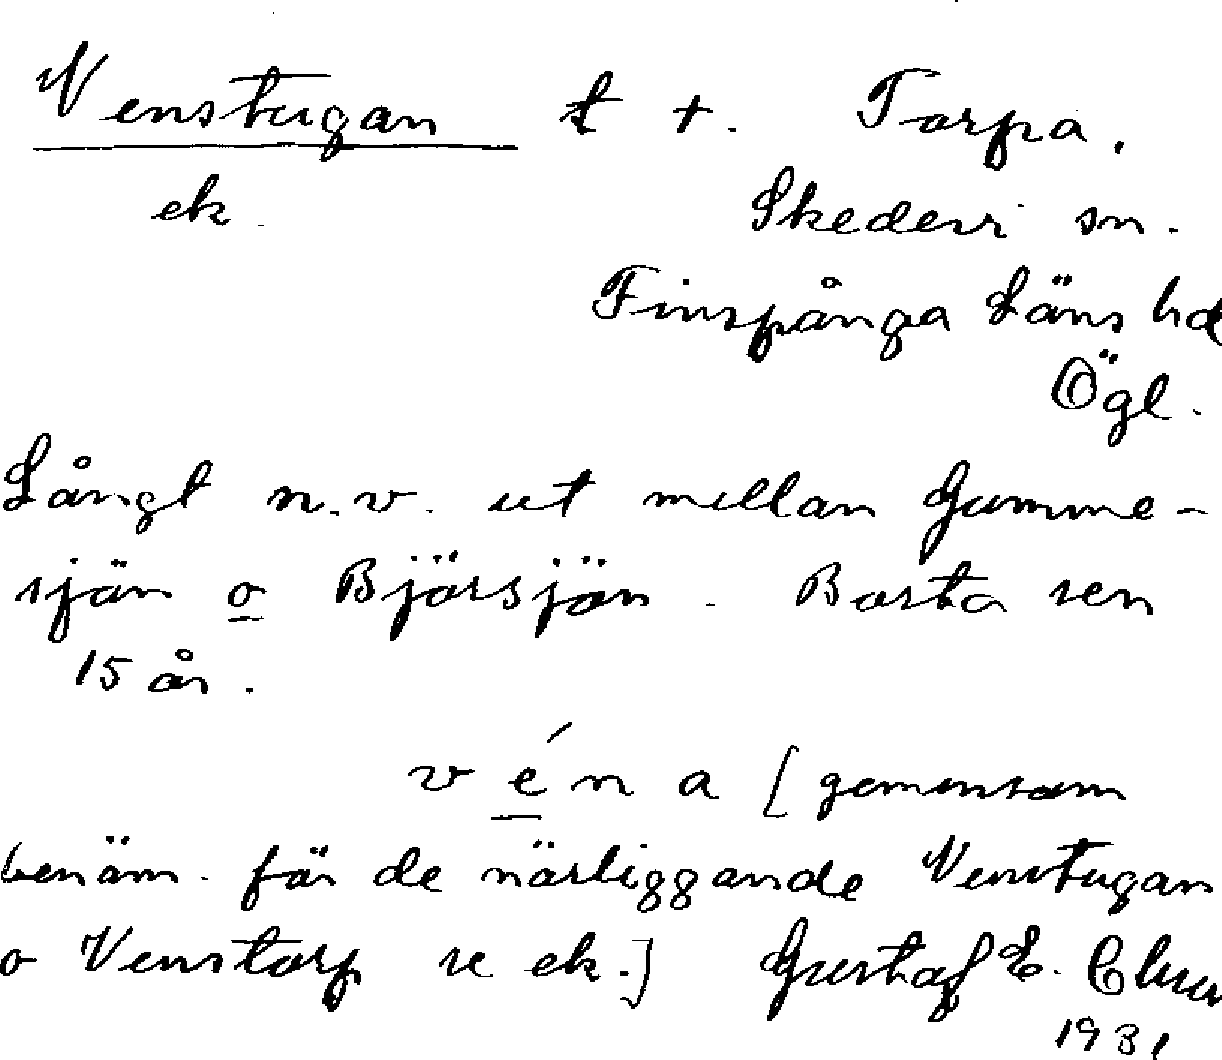 Venstugan t +. Torpa.
ek. Skedevi sn.
Finspånga Läns hd
Ögl.
Långt n.v. ut mellan Gumme-
sjön o Björsjön. Borta sen
15 år.
v é n a [gemensam
benäm. för de närliggande Venstugan
o Venstorp se ek.] Gustaf E.
1931